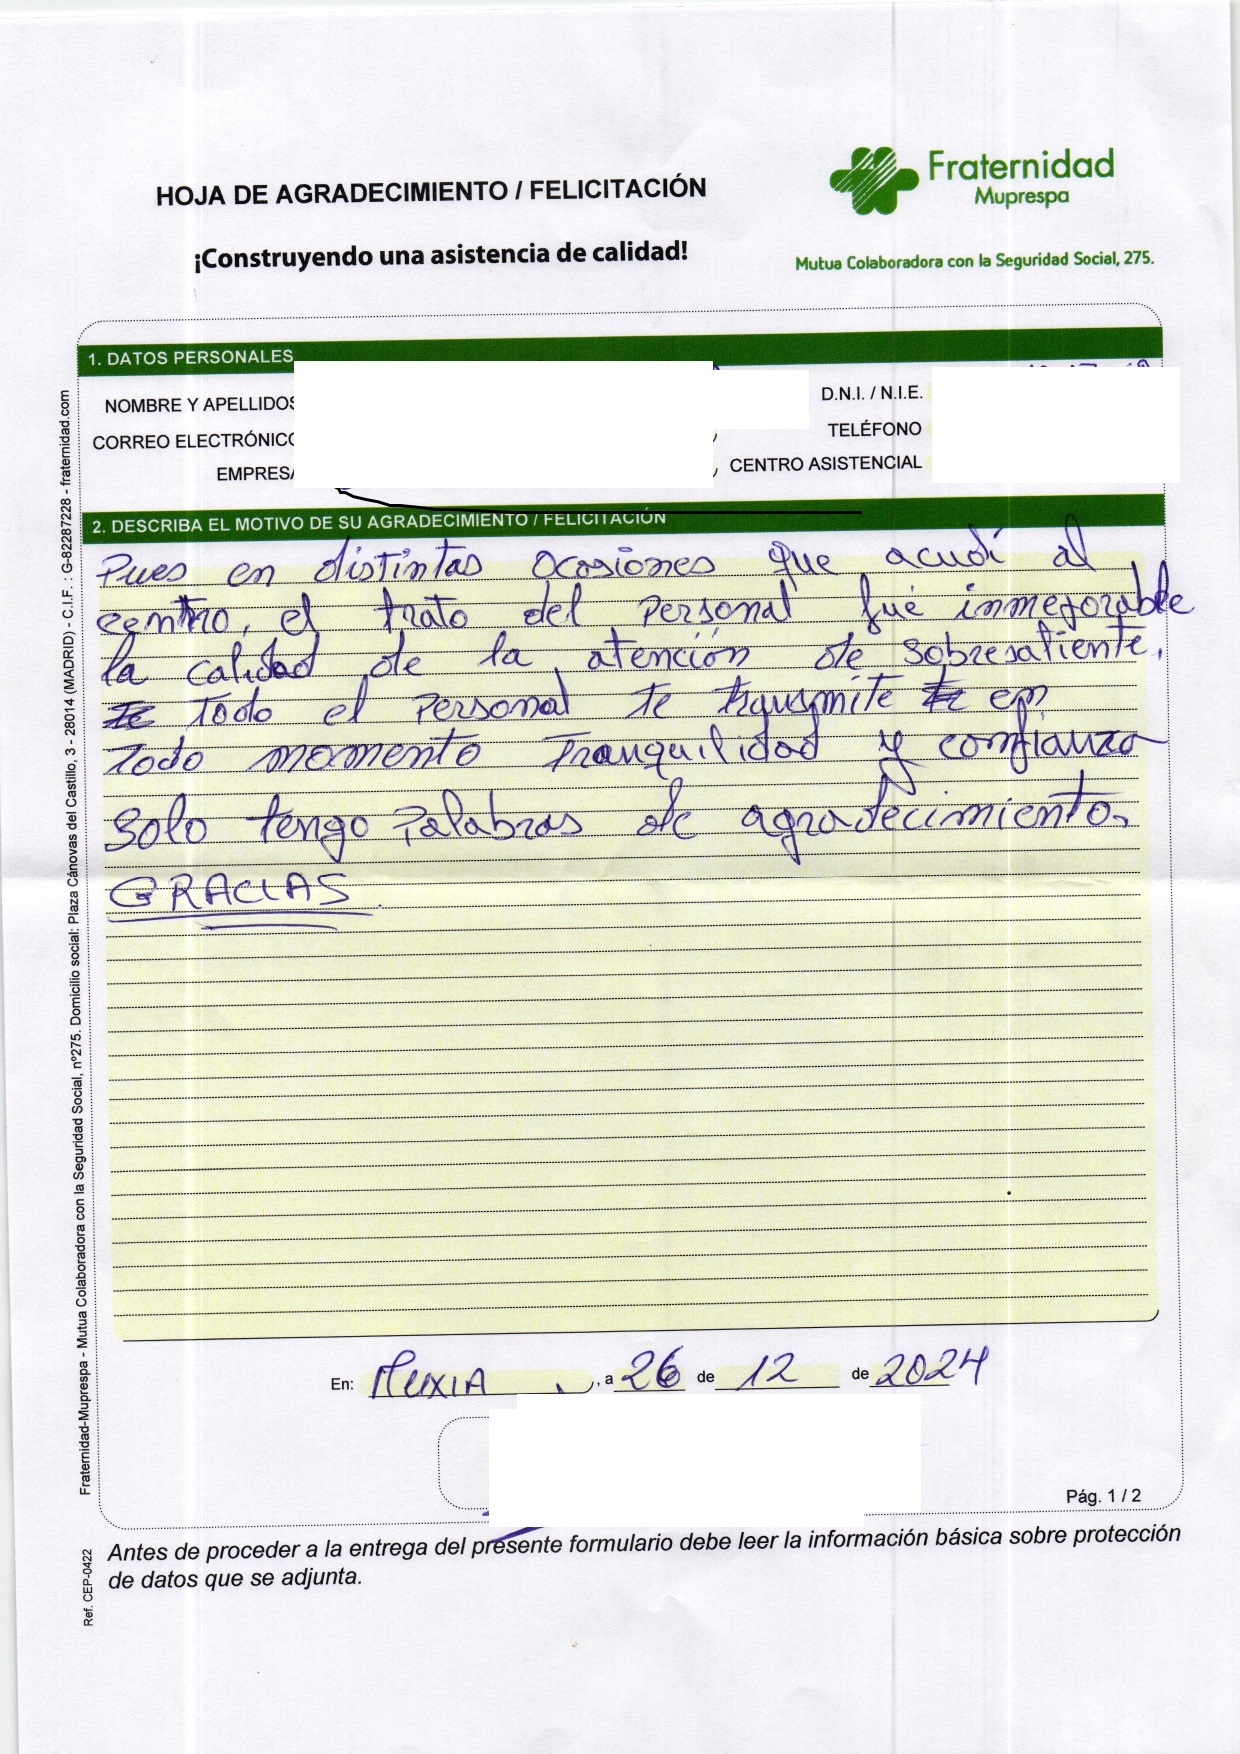 HOJA DE AGRADECIMIENTO / FELICITACIÓN
¡Construyendo una asistencia de calidad!
Fraternidad
Muprespa
Mutua Colaboradora con la Seguridad Social, 275.
1. DATOS PERSONALES
NOMBRE Y APELLIDOS
D.N.I. / N.I.E.
CORREO ELECTRÓNICO
TELÉFONO
EMPRESA
CENTRO ASISTENCIAL
2. DESCRIBA EL MOTIVO DE SU AGRADECIMIENTO / FELICITACIÓN
Pues en distintas ocasiones que acudí al
centro, el trato del Personal fué inmejorable
la calidad de la atención de sobresaliente.
Todo el Personal te transmite en
todo momento Tranquilidad y confianza
Solo tengo Palabras de agradecimiento.
GRACIAS
En: MUXIA, a 26 de 12 de 2024
Pág. 1 / 2
Antes de proceder a la entrega del presente formulario debe leer la información básica sobre protección
de datos que se adjunta.
Fraternidad-Muprespa - Mutua Colaboradora con la Seguridad Social, nº275. Domicilio social: Plaza Cánovas del Castillo, 3 - 28014 (MADRID) - C.I.F. : G-82287228 - fraternidad.com
Ref. CEP-0422